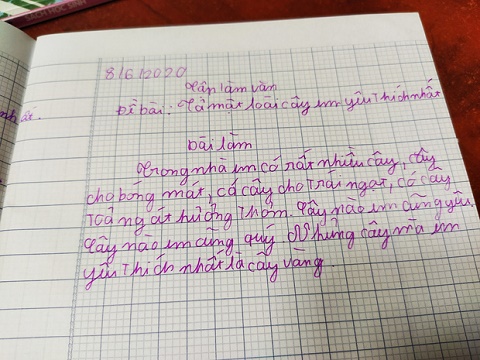 8/6/2020
Tập làm văn
Đề bài: Tả một loài cây em yêu thích nhất
Bài làm
Trong nhà em có rất nhiều cây, cây
cho bóng mát, có cây cho trái ngọt, có cây
toả ngát hương thơm. Cây nào em cũng yêu,
Cây nào em cũng quý. Nhưng cây mà em
yêu thích nhất là cây vàng.